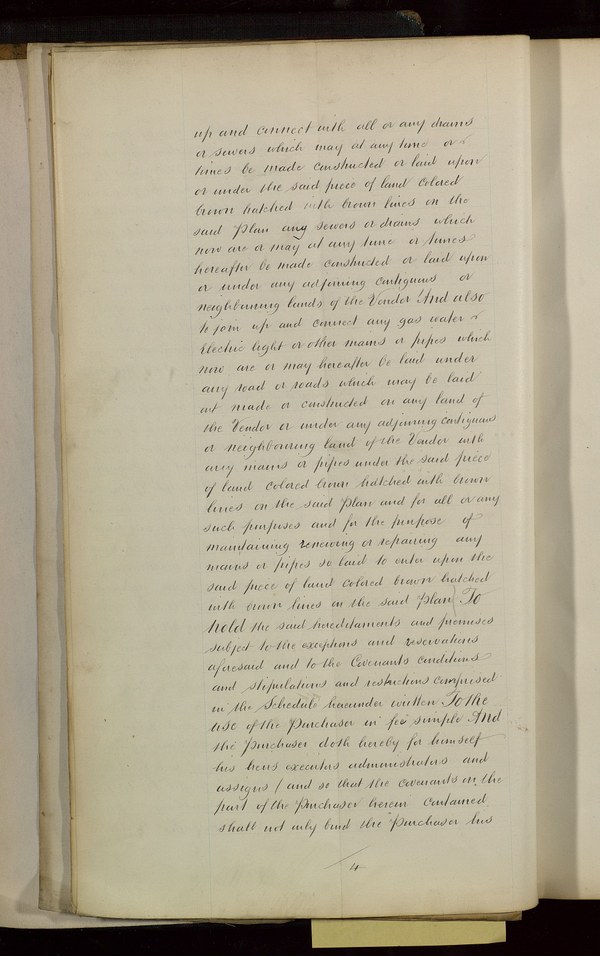 up and connect with all or any drains
or sewers which may at any time or &
times be made constructed or laid upon
or under the said piece of land colored
brown hatched with brown lines on the
said Plan any sewers or drains which
now are or may at any time or times
hereafter be made constructed or laid upon
or under any adjoining contiguous or
neighbouring lands of the Vendor And also
to join up and connect any gas water &
Electric light or other mains or pipes which
now are or may hereafter be laid under
any road or roads which may be laid
out made or constructed on any land of
the Vendor or under any adjoining contiguous
or neighbouring land of the Vendor with
any mains or pipes under the said piece
of land colored brown hatched with brown
lines on the said Plan and for all or any
such purposes and for the purpose of
maintaining renewing or repairing any
mains or pipes so laid to enter upon the
said piece of land colored brown hatched
with brown lines on the said Plan To
hold the said hereditaments and premises
subject to the exceptions and reservations
aforesaid and to the Covenants conditions
and stipulations and restrictions comprised
in the Schedule hereunder written To the
use of the Purchaser in fee simple And
the Purchaser doth hereby for himself
his heirs executors administrators and
assigns (and so that the covenants on the
part of the Purchaser herein contained
shall not only bind the Purchaser his
4